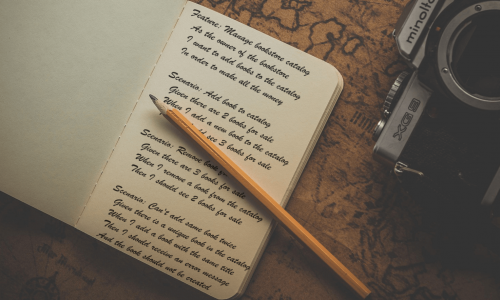 Feature: Manage bookstore catalog
As the owner of the bookstore
I want to add books to the catalog
In order to make all the money
Scenario: Add book to catalog
Given there are 2 books for sale
When I add a new book to the catalog
see 3 books for sale
Scenario: Remove book
Given there are 3 books for sale
When I remove a book from the catalog
Then I should see 2 books for sale
Scenario: Can't add same book twice
Given there is a unique book in the catalog
When I add a book with the same title
Then I should receive an error message
And the book should not be created
minolta
XG